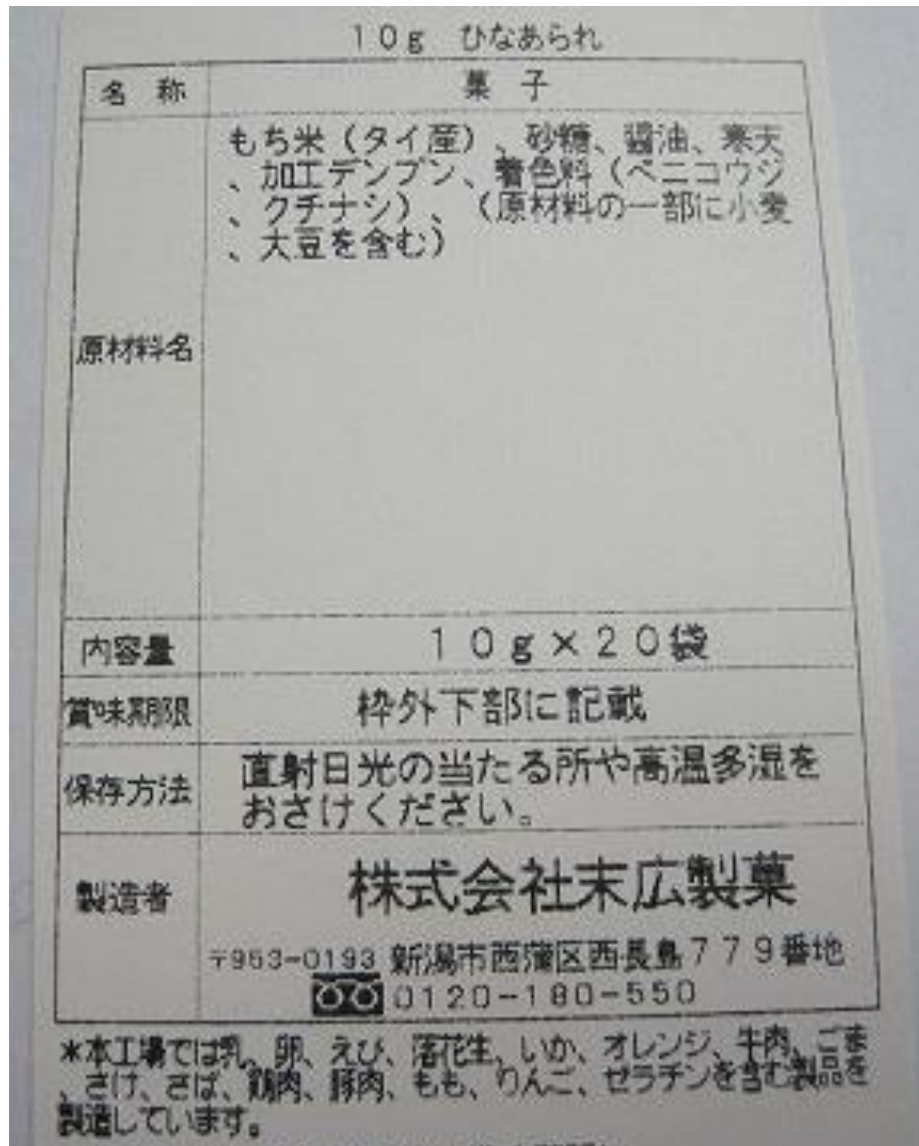 10g ひなあられ
名 称 菓 子
原材料名
もち米(タイ産)、砂糖、醤油、寒天
、加工デンプン、着色料(ベニコウジ
、クチナシ)、(原材料の一部に小麦
、大豆を含む)
内容量 10g×20袋
賞味期限 枠外下部に記載
保存方法 直射日光の当たる所や高温多湿を
おさけください。
製造者 株式会社末広製菓
〒953-0193 新潟市西蒲区西長島779番地
0120-180-550
*本工場では乳、卵、えび、落花生、いか、オレンジ、牛肉、ごま
、さけ、さば、鶏肉、豚肉、もも、りんご、ゼラチンを含む製品を
製造しています。